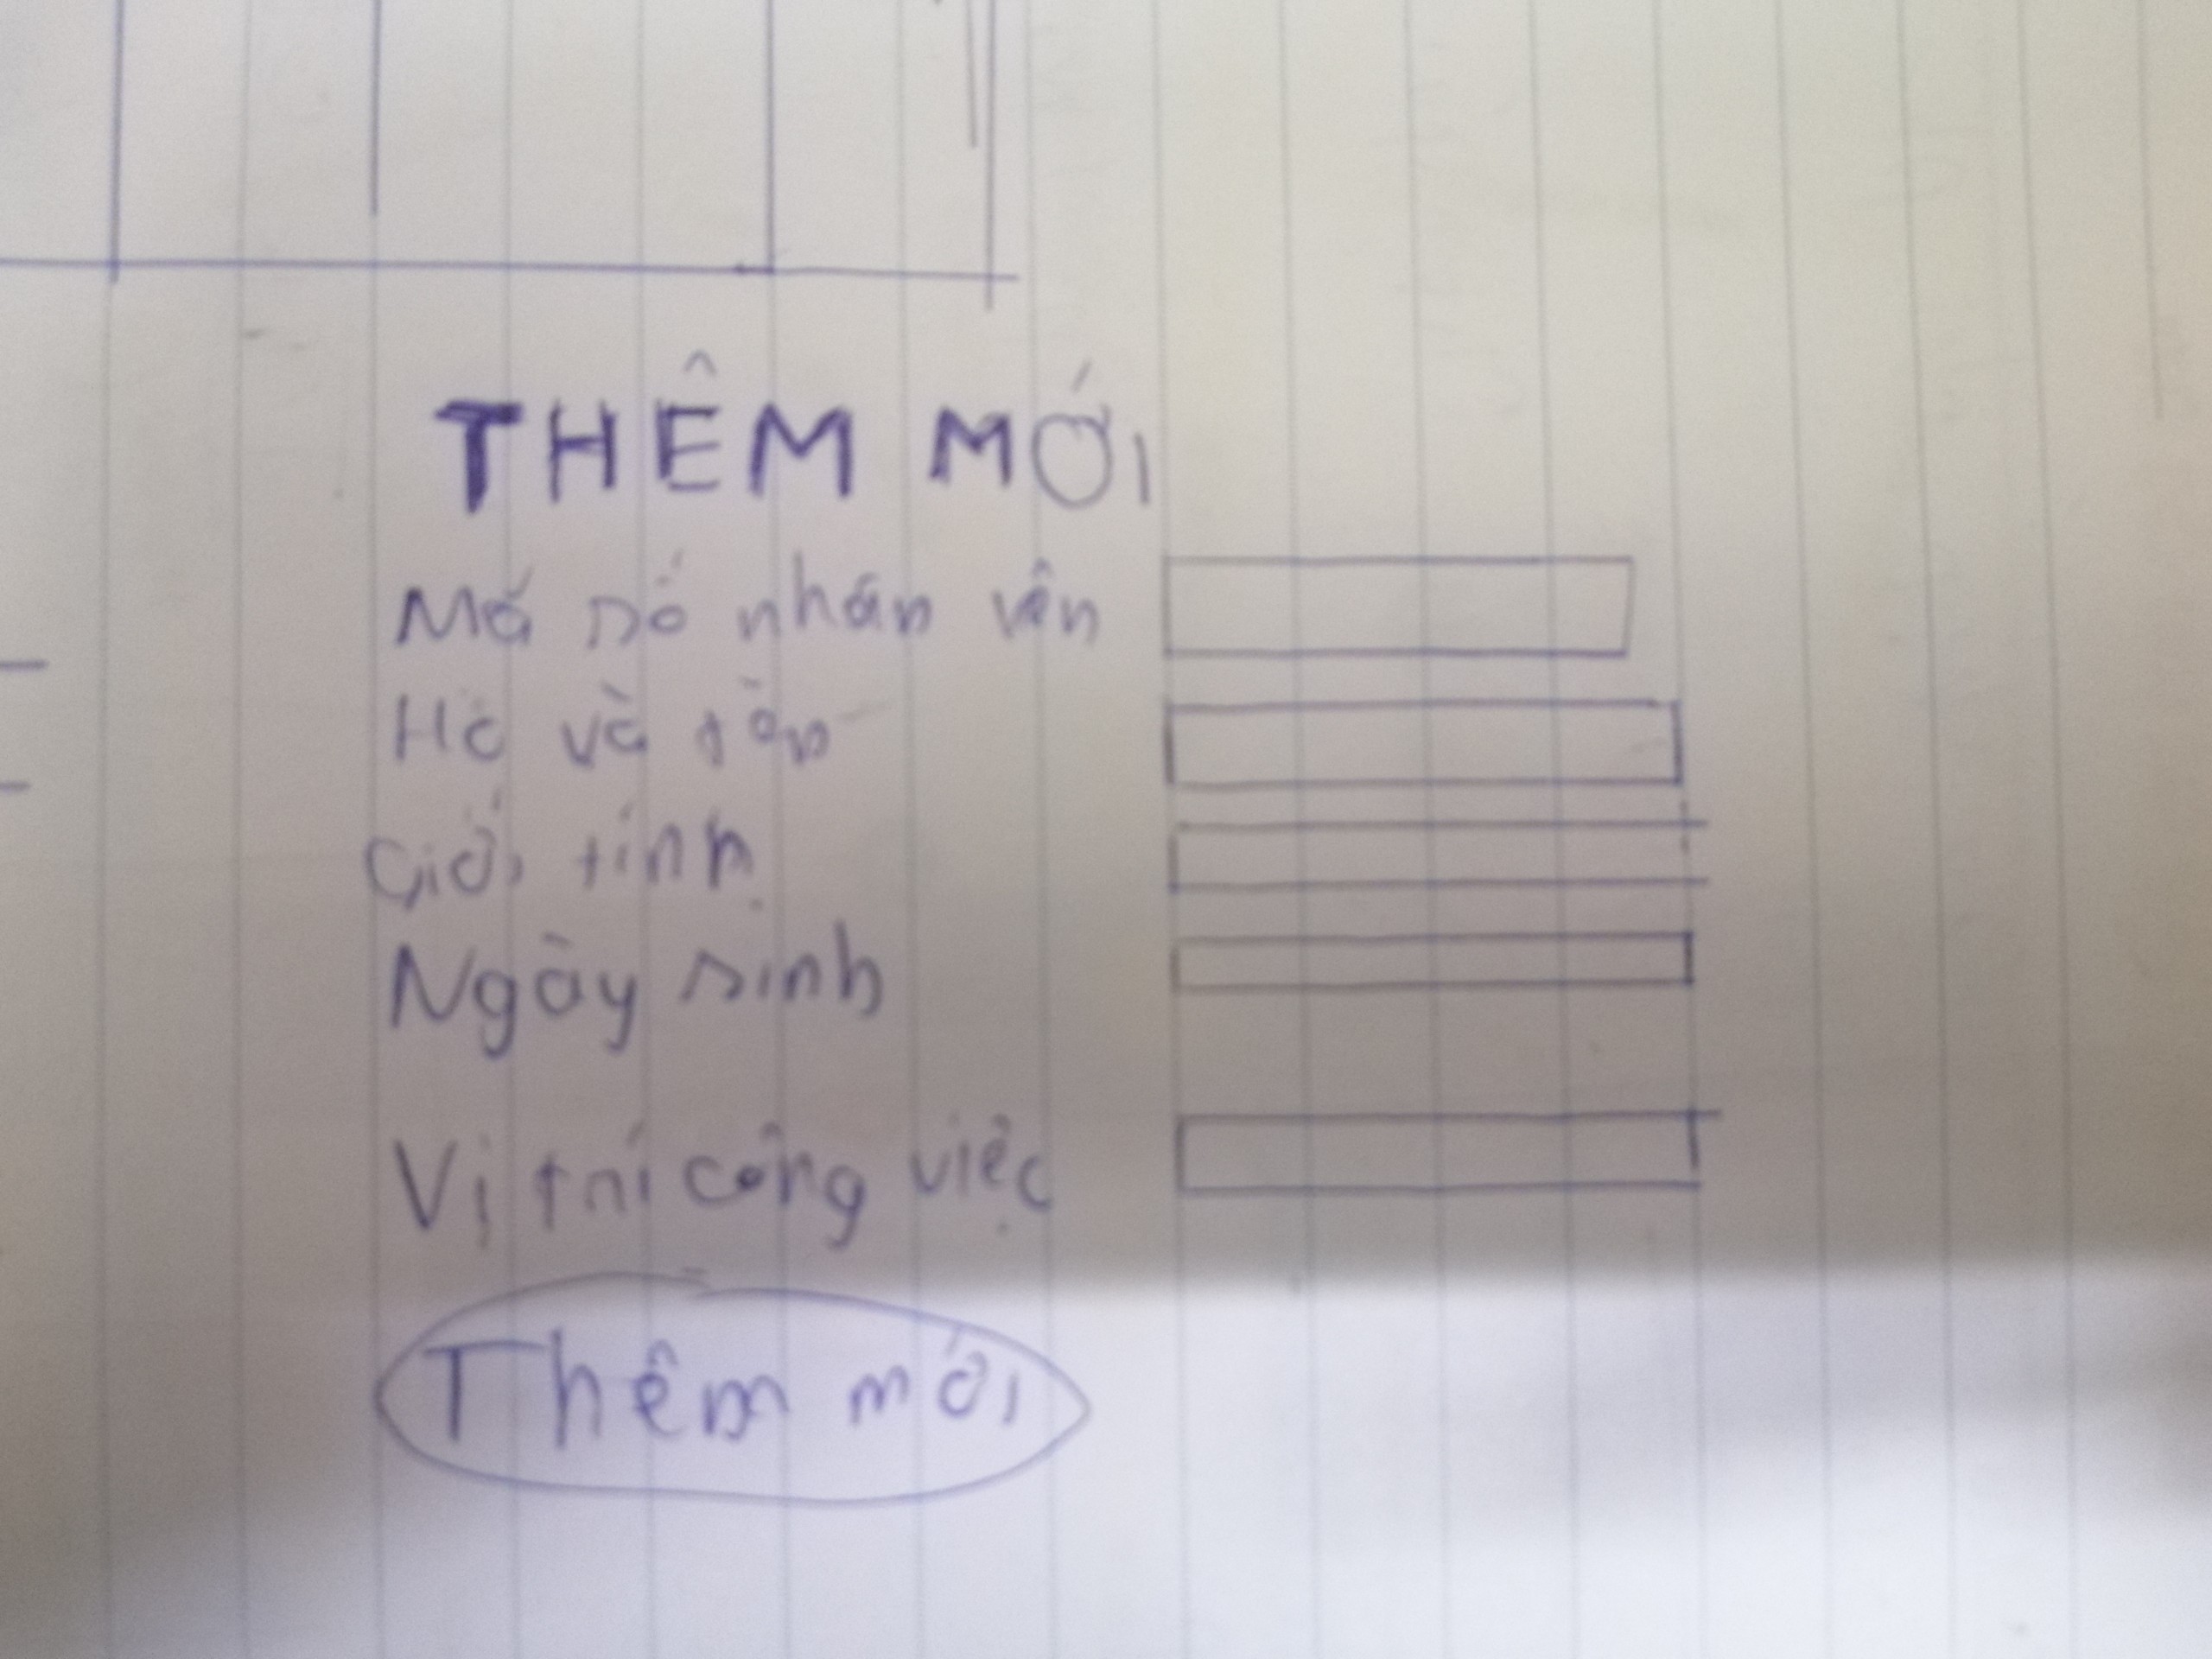 THÊM MỚI
Mã số nhân vên
Họ và tên
Giới tính
Ngày sinh
Vị trí công việc
Thêm mới